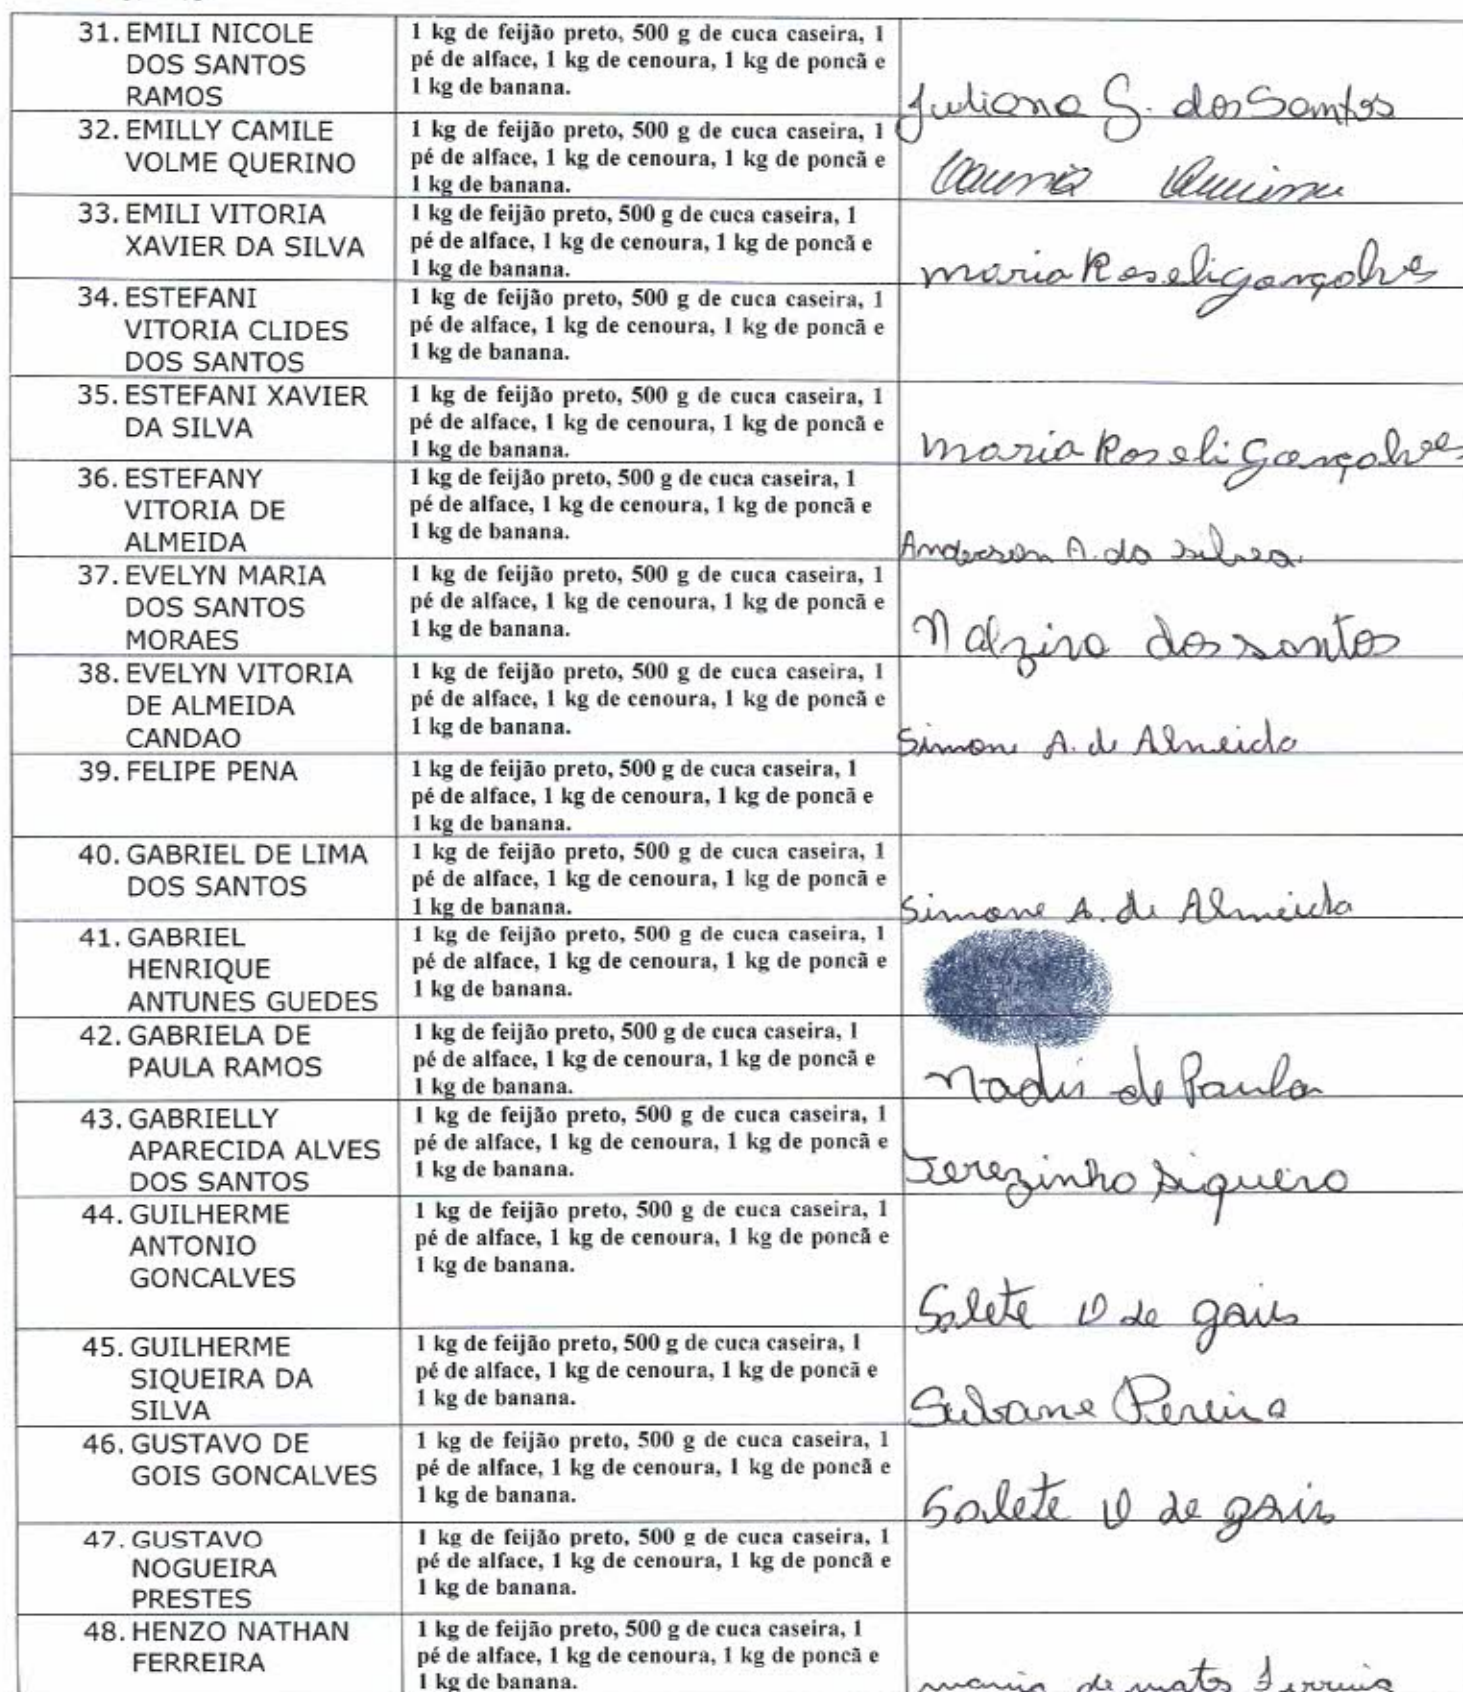 31. EMILI NICOLE
DOS SANTOS
RAMOS
1 kg de feijão preto, 500 g de cuca caseira, 1
pé de alface, 1 kg de cenoura, 1 kg de poncã e
1 kg de banana.
Juliana S. dos Santos
32. EMILLY CAMILE
VOLME QUERINO
1 kg de feijão preto, 500 g de cuca caseira, 1
pé de alface, 1 kg de cenoura, 1 kg de poncã e
1 kg de banana.
33. EMILI VITORIA
XAVIER DA SILVA
1 kg de feijão preto, 500 g de cuca caseira, 1
pé de alface, 1 kg de cenoura, 1 kg de poncã e
1 kg de banana.
maria Roseli gonçalves
34. ESTEFANI
VITORIA CLIDES
DOS SANTOS
1 kg de feijão preto, 500 g de cuca caseira, 1
pé de alface, 1 kg de cenoura, 1 kg de poncã e
1 kg de banana.
35. ESTEFANI XAVIER
DA SILVA
1 kg de feijão preto, 500 g de cuca caseira, 1
pé de alface, 1 kg de cenoura, 1 kg de poncã e
1 kg de banana.
maria Roseli Gonçalves
36. ESTEFANY
VITORIA DE
ALMEIDA
1 kg de feijão preto, 500 g de cuca caseira, 1
pé de alface, 1 kg de cenoura, 1 kg de poncã e
1 kg de banana.
Anderson A. da silva.
37. EVELYN MARIA
DOS SANTOS
MORAES
1 kg de feijão preto, 500 g de cuca caseira, 1
pé de alface, 1 kg de cenoura, 1 kg de poncã e
1 kg de banana.
Nalzira dos santos
38. EVELYN VITORIA
DE ALMEIDA
CANDAO
1 kg de feijão preto, 500 g de cuca caseira, 1
pé de alface, 1 kg de cenoura, 1 kg de poncã e
1 kg de banana.
Simone A. de Almeida
39. FELIPE PENA
1 kg de feijão preto, 500 g de cuca caseira, 1
pé de alface, 1 kg de cenoura, 1 kg de poncã e
1 kg de banana.
40. GABRIEL DE LIMA
DOS SANTOS
1 kg de feijão preto, 500 g de cuca caseira, 1
pé de alface, 1 kg de cenoura, 1 kg de poncã e
1 kg de banana.
Simone A. de Almeida
41. GABRIEL
HENRIQUE
ANTUNES GUEDES
1 kg de feijão preto, 500 g de cuca caseira, 1
pé de alface, 1 kg de cenoura, 1 kg de poncã e
1 kg de banana.
42. GABRIELA DE
PAULA RAMOS
1 kg de feijão preto, 500 g de cuca caseira, 1
pé de alface, 1 kg de cenoura, 1 kg de poncã e
1 kg de banana.
Nadir de Paula
43. GABRIELLY
APARECIDA ALVES
DOS SANTOS
1 kg de feijão preto, 500 g de cuca caseira, 1
pé de alface, 1 kg de cenoura, 1 kg de poncã e
1 kg de banana.
Terezinha Siqueira
44. GUILHERME
ANTONIO
GONCALVES
1 kg de feijão preto, 500 g de cuca caseira, 1
pé de alface, 1 kg de cenoura, 1 kg de poncã e
1 kg de banana.
Salete V de gois
45. GUILHERME
SIQUEIRA DA
SILVA
1 kg de feijão preto, 500 g de cuca caseira, 1
pé de alface, 1 kg de cenoura, 1 kg de poncã e
1 kg de banana.
Pereira
46. GUSTAVO DE
GOIS GONCALVES
1 kg de feijão preto, 500 g de cuca caseira, 1
pé de alface, 1 kg de cenoura, 1 kg de poncã e
1 kg de banana.
Salete V de gois
47. GUSTAVO
NOGUEIRA
PRESTES
1 kg de feijão preto, 500 g de cuca caseira, 1
pé de alface, 1 kg de cenoura, 1 kg de poncã e
1 kg de banana.
48. HENZO NATHAN
FERREIRA
1 kg de feijão preto, 500 g de cuca caseira, 1
pé de alface, 1 kg de cenoura, 1 kg de poncã e
1 kg de banana.
maria de matos Ferreira